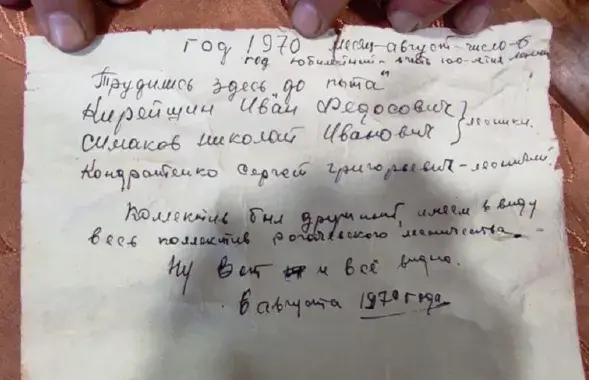 год 1970 месяц-август-число-6
год юбилейный - 100-лет
Трудились здесь до пота"
Кирейщин Иван Федосович
Симаков Николай Иванович } лесники.
Кондратенко Сергей Григорьевич - лесничий.
Коллектив был дружный, имеем в виду
весь коллектив Рогачевского лесничества.
Ну Вот и всё видно.
6 августа 1970 года